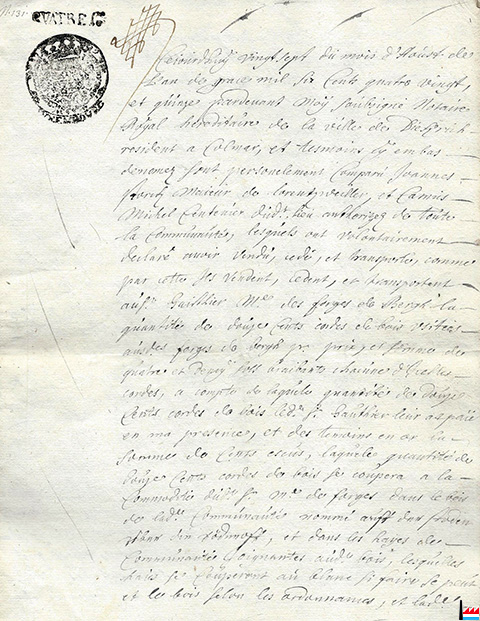 QVATRE SS
Cejourdhuy vingt sept du mois d'Aoust de
l'an de grace mil six Cents quatre vingt,
et quinze pardevant Moy soubsigné Notaire
Royal héréditaire de la ville de
resident a Colmar, et tesmoins cy embas
denomez sont personelement Comparu Joannes
Maieur de Lorentzweiller, et
Michel Centenier dud.t lieu authorizez de toute
la Communauté, lesquels ont volontairement
declaré avoir vendu, cedé, et transporté, comme
par cette ils vendent, cedent, et transportent
au s.r Gaulthier M.re des forges de Bergh la
quantité de douze Cents cordes de bois
aud. forges de bergh pr. prix, et somme de
quatre et demy sols chacune d'icelles
cordes, a compte de laquelle quantité de douze
Cents cordes de bois led.t s.r Gaulthier leur a payé
en ma presence, et des temoins en or la
somme de Cents escus, laquelle quantité de
douze Cents cordes de bois se coupera a la
Commodité dud.t s.r M.re de forges dans le bois
de lad.te Communauté nommé auff der
und dans les hayes de
Communauté joignantes aud.t bois, lesquelles
bois se couperont au si faire se peut
et les bois selon les ordonnances, et lad.te